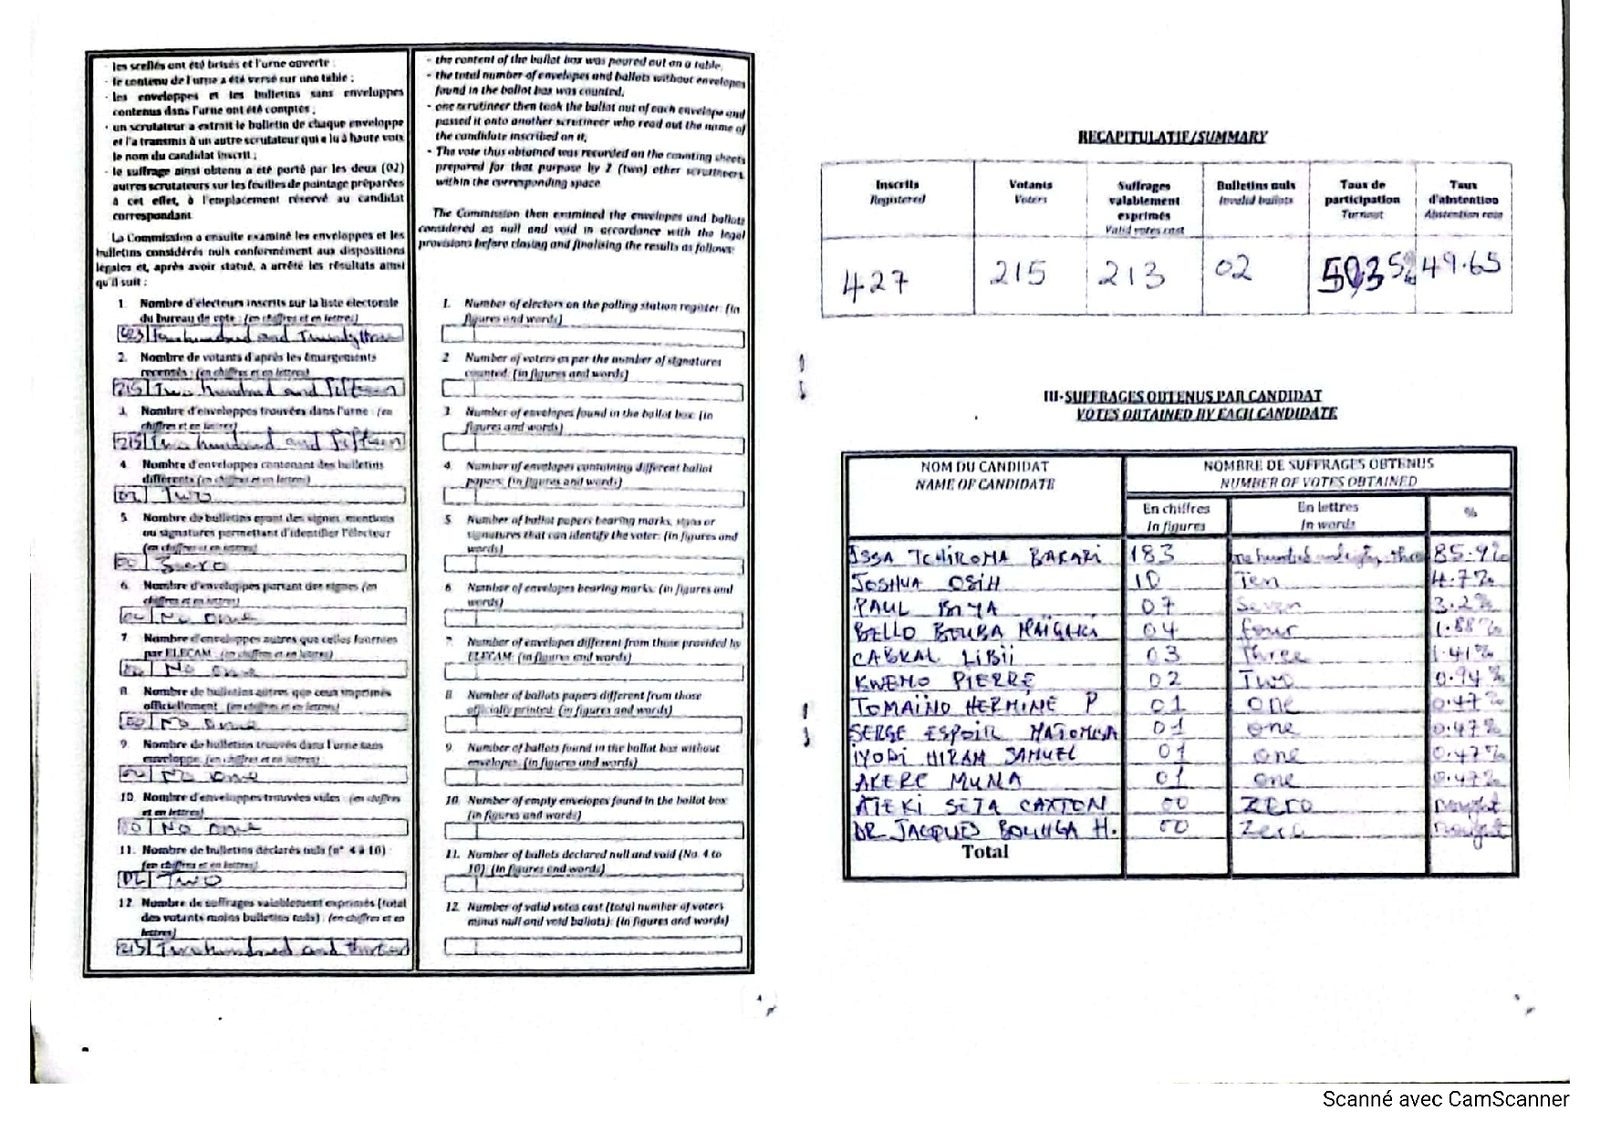 - les scellés ont été brisés et l'urne ouverte ;
- le contenu de l'urne a été versé sur une table ;
- les enveloppes et les bulletins sans enveloppes
contenus dans l'urne ont été comptés ;
- un scrutateur a extrait le bulletin de chaque enveloppe
et l'a transmis à un autre scrutateur qui a lu à haute voix
le nom du candidat inscrit ;
- le suffrage ainsi obtenu a été porté par les deux (02)
autres scrutateurs sur les feuilles de pointage préparées
à cet effet, à l'emplacement réservé au candidat
correspondant.
La Commission a ensuite examiné les enveloppes et les
bulletins considérés nuls conformément aux dispositions
légales et, après avoir statué, a arrêté les résultats ainsi
qu'il suit :
1. Nombre d'électeurs inscrits sur la liste électorale
du bureau de vote : (en chiffres et en lettres)
2. Nombre de votants d'après les émargements
recensés : (en chiffres et en lettres)
215 Two hundred and fifteen
3. Nombre d'enveloppes trouvées dans l'urne : (en
chiffres et en lettres)
215 Two hundred and fifteen
4. Nombre d'enveloppes contenant des bulletins
différents (en chiffres et en lettres)
02 Two
5. Nombre de bulletins ayant des signes, mentions
ou signatures permettant d'identifier l'électeur
(en chiffres et en lettres)
00 Zero
6. Nombre d'enveloppes portant des signes (en
chiffres et en lettres)
00 No one
7. Nombre d'enveloppes autres que celles fournies
par ELECAM : (en chiffres et en lettres)
00 No one
8. Nombre de bulletins autres que ceux imprimés
officiellement (en chiffres et en lettres)
00 No one
9. Nombre de bulletins trouvés dans l'urne sans
enveloppe. (en chiffres et en lettres)
00 No one
10. Nombre d'enveloppes trouvées vides : (en chiffres
et en lettres)
00 No one
11. Nombre de bulletins déclarés nuls (n° 4 à 10) :
(en chiffres et en lettres)
02 Two
12. Nombre de suffrages valablement exprimés (total
des votants moins bulletins nuls) : (en chiffres et en
lettres)
213 Two hundred and thirteen
- the content of the ballot box was poured out on a table,
- the total number of envelopes and ballots without envelopes
found in the ballot box was counted,
- one scrutineer then took the ballot out of each envelope and
passed it onto another scrutineer who read out the name of
the candidate inscribed on it;
- The vote thus obtained was recorded on the counting sheets
prepared for that purpose by 2 (two) other scrutineers
within the corresponding space.
The Commission then examined the envelopes and ballots
considered as null and void in accordance with the legal
provisions before closing and finalising the results as follows:
1. Number of electors on the polling station register: (in
figures and words)
2 Number of voters as per the number of signatures
counted: (in figures and words)
3 Number of envelopes found in the ballot box: (in
figures and words)
4. Number of envelopes containing different ballot
papers: (in figures and words)
5 Number of ballot papers bearing marks, signs or
signatures that can identify the voter: (in figures and
words)
6 Number of envelopes bearing marks: (in figures and
words)
7. Number of envelopes different from those provided by
ELECAM: (in figures and words)
8 Number of ballots papers different from those
officially printed: (in figures and words)
9. Number of ballots found in the ballot box without
envelopes: (in figures and words)
10. Number of empty envelopes found in the ballot box:
(in figures and words)
11. Number of ballots declared null and void (No. 4 to
10): (in figures and words)
12. Number of valid votes cast (total number of voters
minus null and void ballots): (in figures and words)
RECAPITULATIF/SUMMARY
Inscrits Votants Suffrages valablement exprimés Bulletins nuls Taux de participation Taux d'abstention
Registered Voters Valid votes cast Invalid ballots Turnout Abstention rate
427 215 213 02 49.65
III-SUFFRAGES OBTENUS PAR CANDIDAT
VOTES OBTAINED BY EACH CANDIDATE
NOM DU CANDIDAT NOMBRE DE SUFFRAGES OBTENUS
NAME OF CANDIDATE NUMBER OF VOTES OBTAINED
En chiffres En lettres %
In figures In words
ISSA TCHIROMA BAKARI 183 85.9%
JOSHUA OSIH 10 Ten 4.7%
PAUL BIYA 07 Seven 3.2%
BELLO BOUBA MAÏGARI 04 four 1.88%
CABRAL LIBII 03 Three 1.41%
KWEMO PIERRE 02 Two 0.94%
TOMAÏNO HERMINE P 01 One 0.47%
SERGE ESPOIR MATOMBA 01 One 0.47%
IYODI HIRAM SAMUEL 01 One 0.47%
AKERE MUNA 01 One 0.47%
ATEKI SETA CAXTON 00 ZERO Nought
DR JACQUES BOUHGA H. 00 Zero Nought
Total
Scanné avec CamScanner